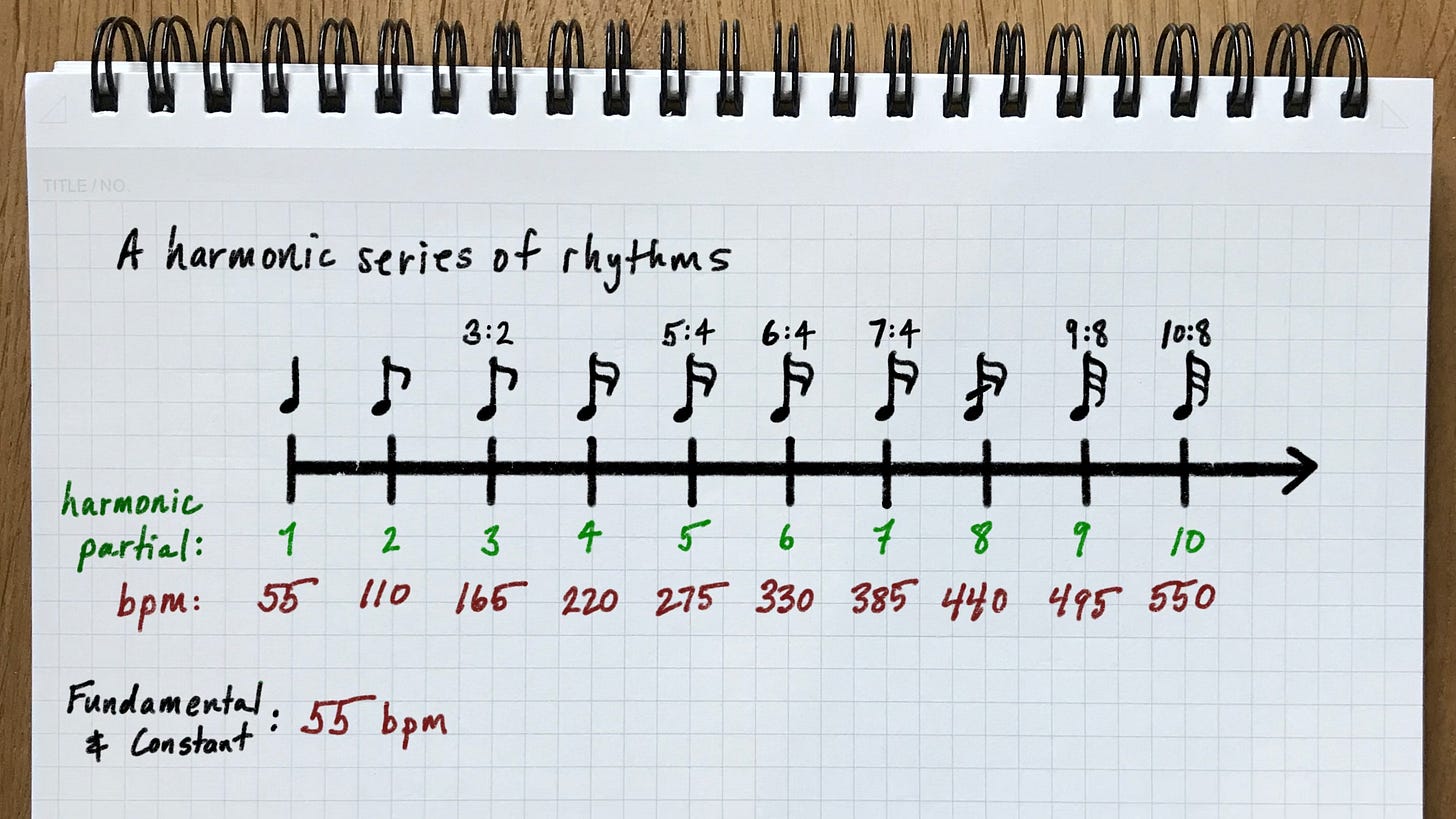 TITLE / NO.
A harmonic series of rhythms
3:2 5:4 6:4 7:4 9:8 10:8
harmonic
partial: 1 2 3 4 5 6 7 8 9 10
bpm: 55 110 165 220 275 330 385 440 495 550
Fundamental
& Constant : 55 bpm